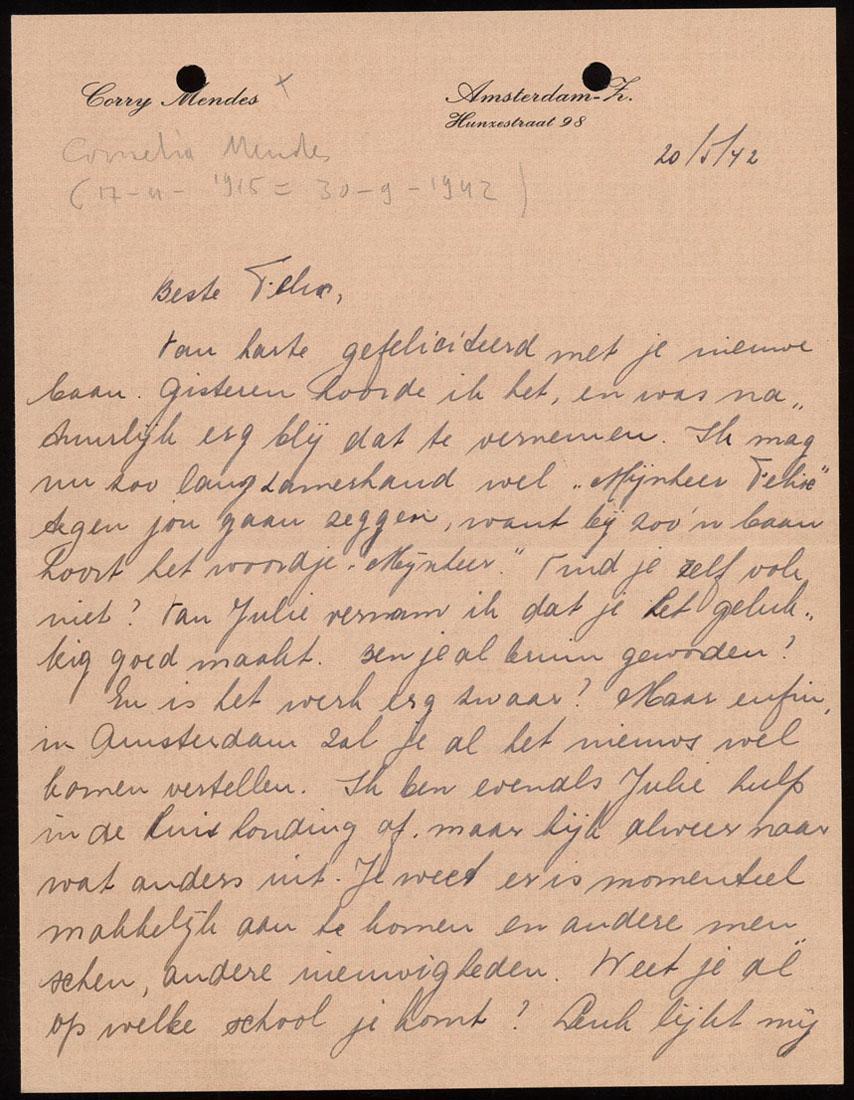 Corry Mendes x
Amsterdam-Z.
Hunzestraat 98
Cornelia Mendes
(17-11-1915 = 30-9-1942)
20/5/42
Beste Felix,
Van harte gefeliciteerd met je nieuwe
baan. Gisteren hoorde ik het, en was na„
tuurlijk erg blij dat te vernemen. Ik mag
nu zoo langzamerhand wel „Mijnheer Felix"
tegen jou gaan zeggen, want bij zoo'n baan
hoort het woordje „Mijnheer." Vind je zelf ook
niet? Van Julie vernam ik dat je het geluk„
kig goed maakt. Ben je al bruin geworden?
En is het werk erg zwaar? Maar enfin,
in Amsterdam zal je al het nieuws wel
komen vertellen. Ik ben evenals Julie hulp
in de huishouding af, maar kijk alweer naar
wat anders uit. Je weet er is momenteel
makkelijk aan te komen en andere men„
schen, andere nieuwigheden. Weet je al
op welke school je komt? Leuk lijkt mij